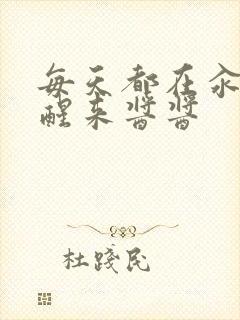 每天都在汆
醒来酱酱
杜踐民